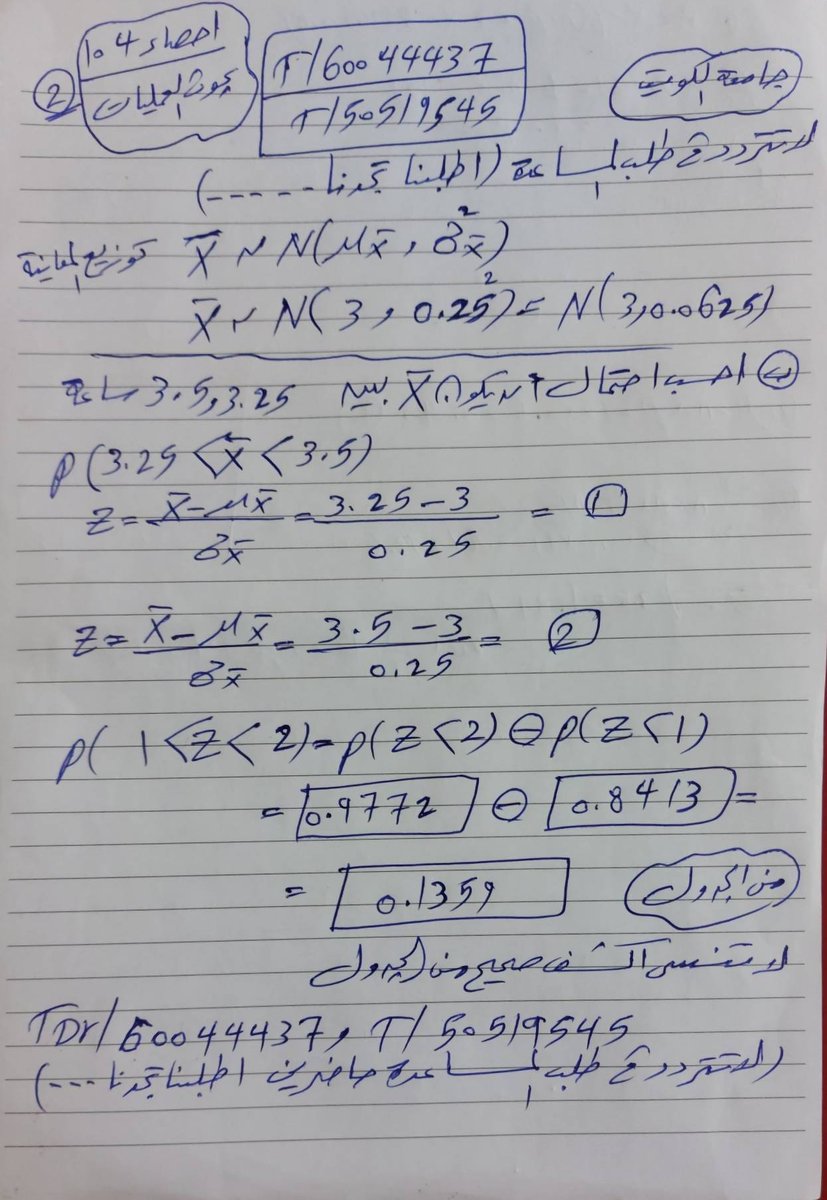 احصاء 104
بحوث العمليات
②
T/60044437
T/50519545
جامعة الكويت
لا تتردد في طلب المساعدة (اطلبنا تجدنا -----)
توزيع المعاينة X̄ ~ N(μx̄ , σ²x̄)
X̄ ~ N(3 , 0.25²) = N(3, 0.0625)
ب احسب احتمال أن يكون X̄ بين 3.25 , 3.5 ساعة
P(3.25 < x̄ < 3.5)
Z = X̄ - μx̄ / σx̄ = 3.25 - 3 / 0.25 = 1
Z = X̄ - μx̄ / σx̄ = 3.5 - 3 / 0.25 = 2
P(1 < Z < 2) = P(Z < 2) ⊖ P(Z < 1)
= 0.9772 ⊖ 0.8413 =
= 0.1359
من الجدول
لا تنسى اكشف صحيح من الجدول
TDr/60044437, T/50519545
(لا تتردد في طلب المساعدة حاضرين اطلبنا تجدنا ---)